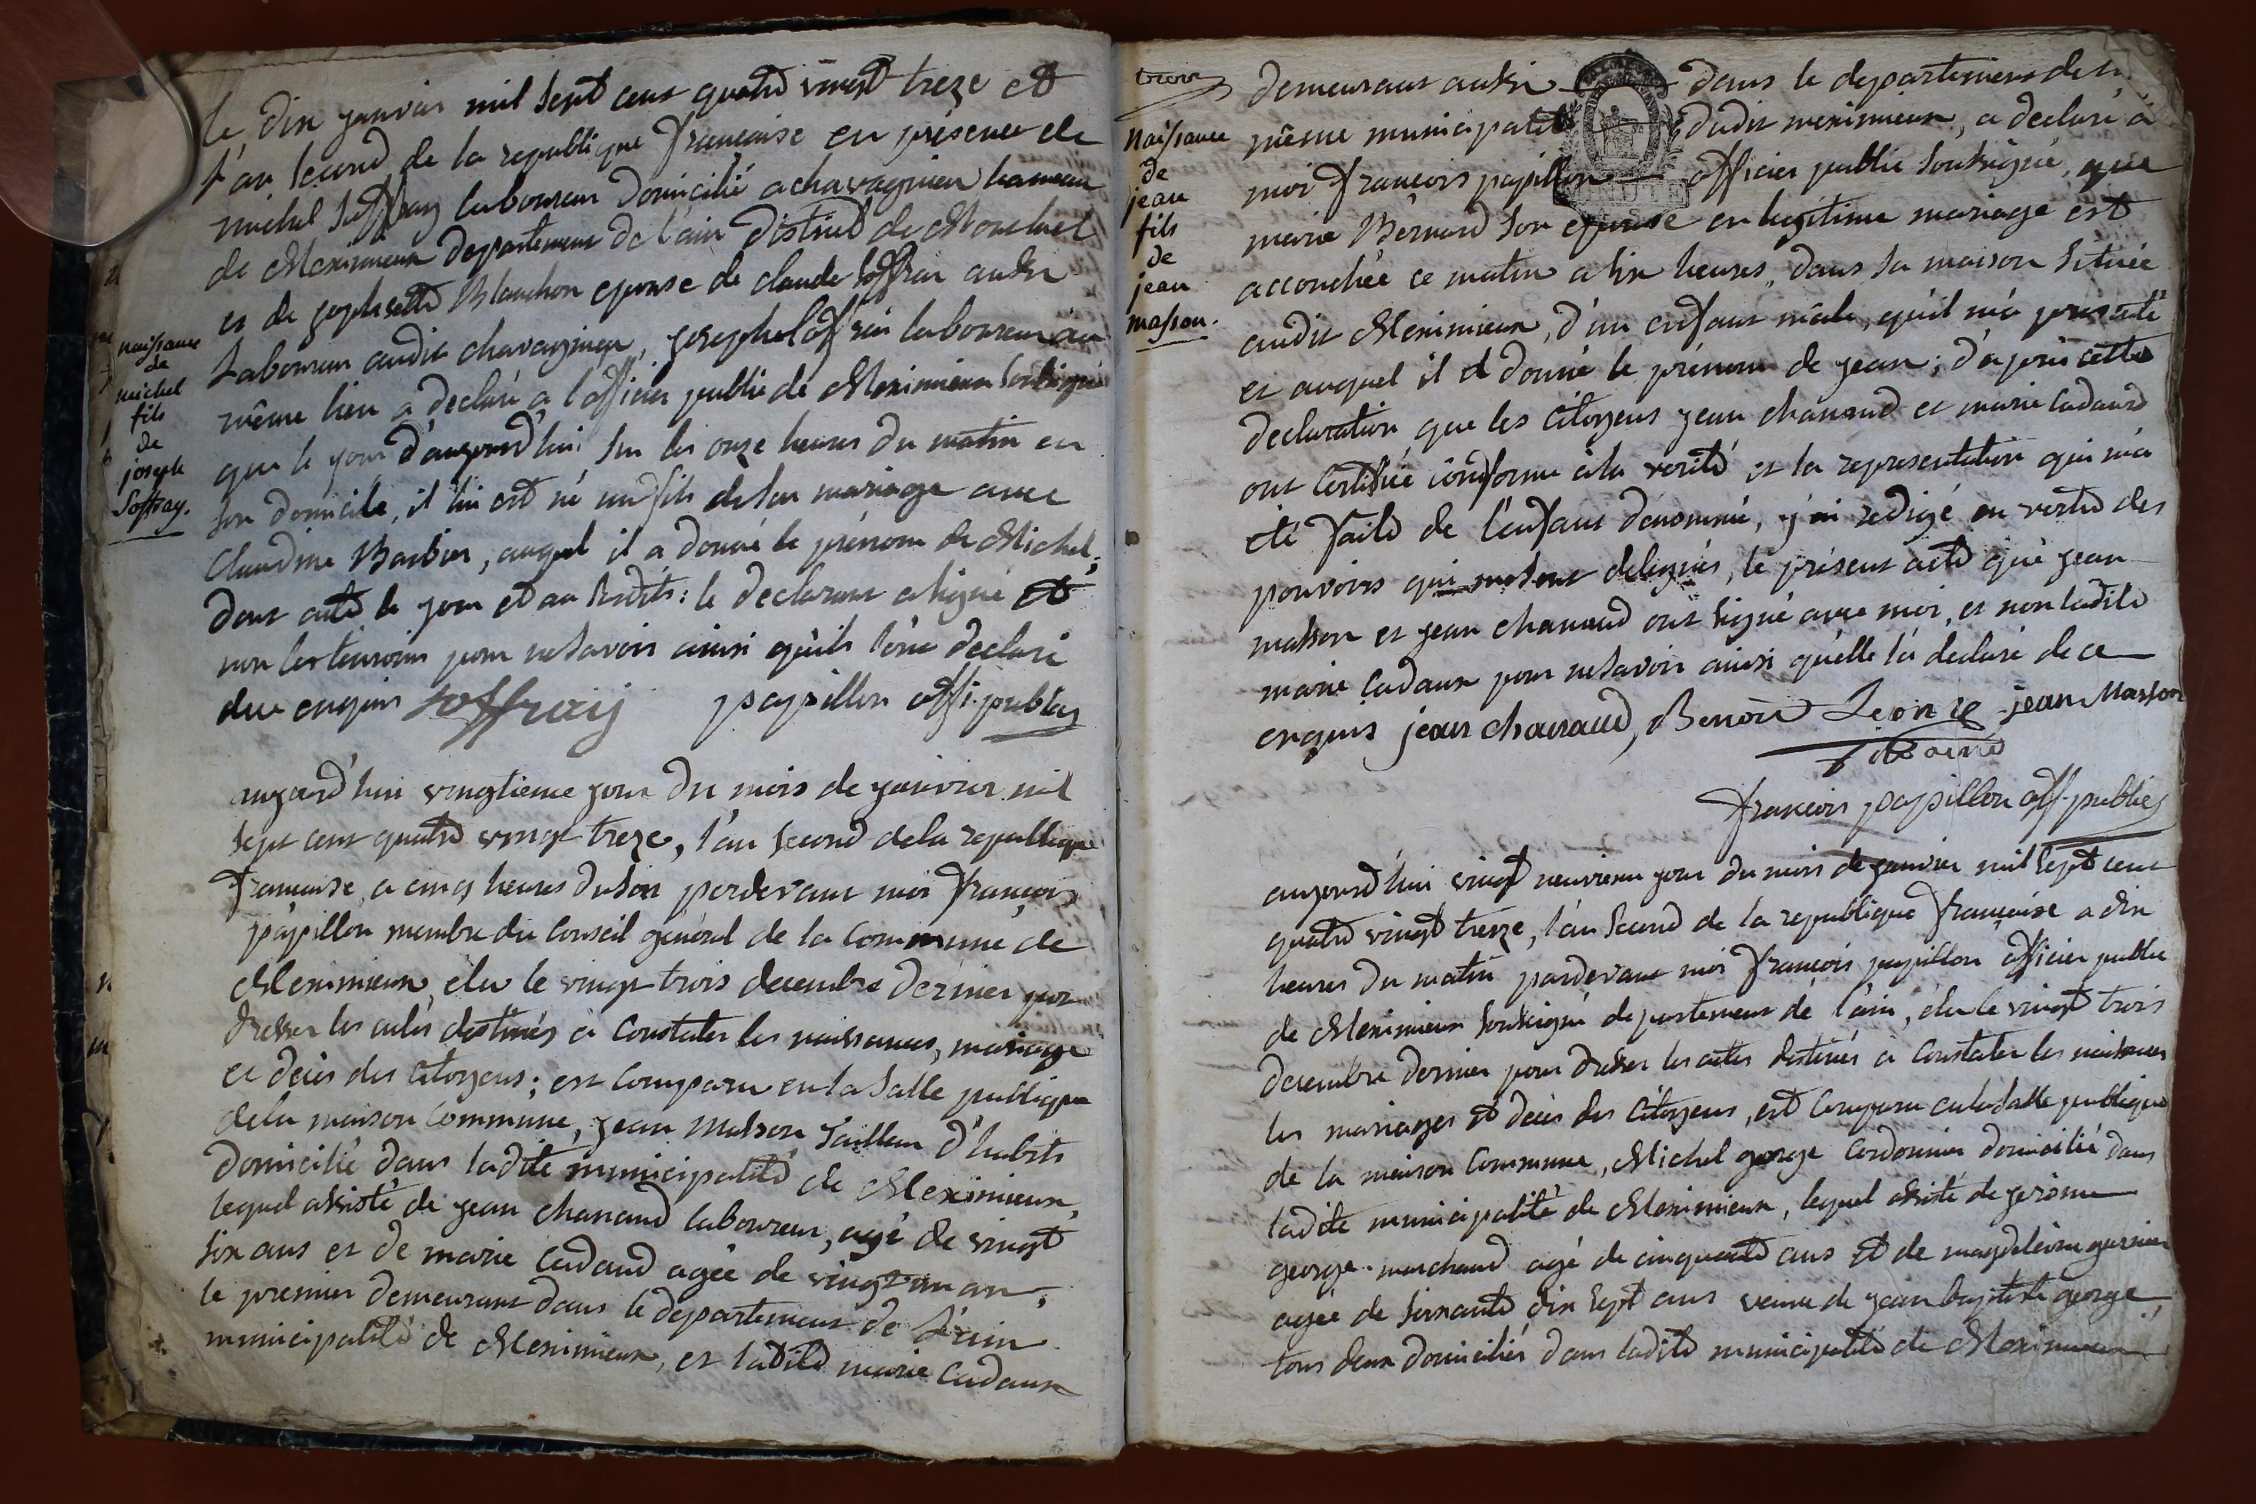 le dix janvier mil sept cent quatre vingt treze et
l'an second de la republique francaise en présence de
michel Soffray laboureur domicilié a chavagnieu hameau
de Meximieux departement de l'ain district de Montluel
et de josephe Blanchon epouse de claude Soffray aussi
Laboureur audit chavagnieu, joseph Soffray laboureur au
même lieu a declaré a l'officier public de Meximieux soussigné
que le jour d'aujourd'hui sur les onze heures du matin en
son domicile, il lui est né un fils de son mariage avec
Claudine Barbier, auquel il a donné le prénom de Michel;
dont acte le jour et an susdits: le declarant a signé et
non les temoins pour ne savoir ainsi qu'ils l'ont declaré
de ce enquis Soffray papillon offi. public
naissance
de
michel
fils
de
joseph
Soffray.
aujourd'hui vingtieme jour du mois de janvier mil
sept cent quatre vingt treze, l'an second de la republique
francaise, a cinq heures du soir pardevant moi françois
papillon membre du Conseil général de la Commune de
Meximieux, elu le vingt trois decembre dernier pour
dresser les actes destinés a Constater les naissances, mariage
et décès des Citoyens; est Comparu en la salle publique
de la maison Commune, jean Masson Tailleur d'habits
domicilié dans ladite municipalité de Meximieux,
lequel assisté de jean chanaud laboureur, agé de vingt
six ans et de marie Cadaud agée de vingt un an,
le premier demeurant dans le departement de l'ain
municipalité de Meximieux, et ladite marie Cadaux
trois
demeurant aussi dans le departement de
même municipalité dudit meximieux, a declaré a
moi françois papillon officier public soussigné, que
marie Bernard son epouse en legitime mariage est
accouchée ce matin a six heures, dans sa maison située
audit Meximieux, d'un enfant mâle, qu'il m'a presenté
et auquel il a donné le prénom de jean; d'apres cette
declaration que les Citoyens jean chanaud et marie Cadaud
ont Certifié conforme à la verité et la representation qui m'a
été faite de l'enfant dénommé, j'ai redigé en vertu des
pouvoirs qui me sont delegués, le présent acte que jean
masson et jean chanaud ont signé avec moi, et non ladite
marie Cadaux pour ne savoir ainsi qu'elle l'a declaré de ce
enquis jean chanaud, Benoit jean Masson
françois papillon off. public
naissance
de
jean
fils
de
jean
masson.
aujourd'hui vingt neuvieme jour du mois de janvier mil sept cent
quatre vingt treize, l'an second de la republique française a dix
heures du matin pardevant moi françois papillon officier public
de Meximieux soussigné departement de l'ain, elu le vingt trois
decembre dernier pour dresser les actes destinés a Constater les naissances
les mariages et décès des Citoyens, est Comparu en la salle publique
de la maison Commune, Michel george Cordonnier domicilié dans
ladite municipalité de Meximieux, lequel assisté de jerôme
george marchand agé de cinquante ans et de magdeleine garnier
agée de soixante dix sept ans veuve de jean baptiste george,
tous deux domiciliés dans ladite municipalité de Meximieux